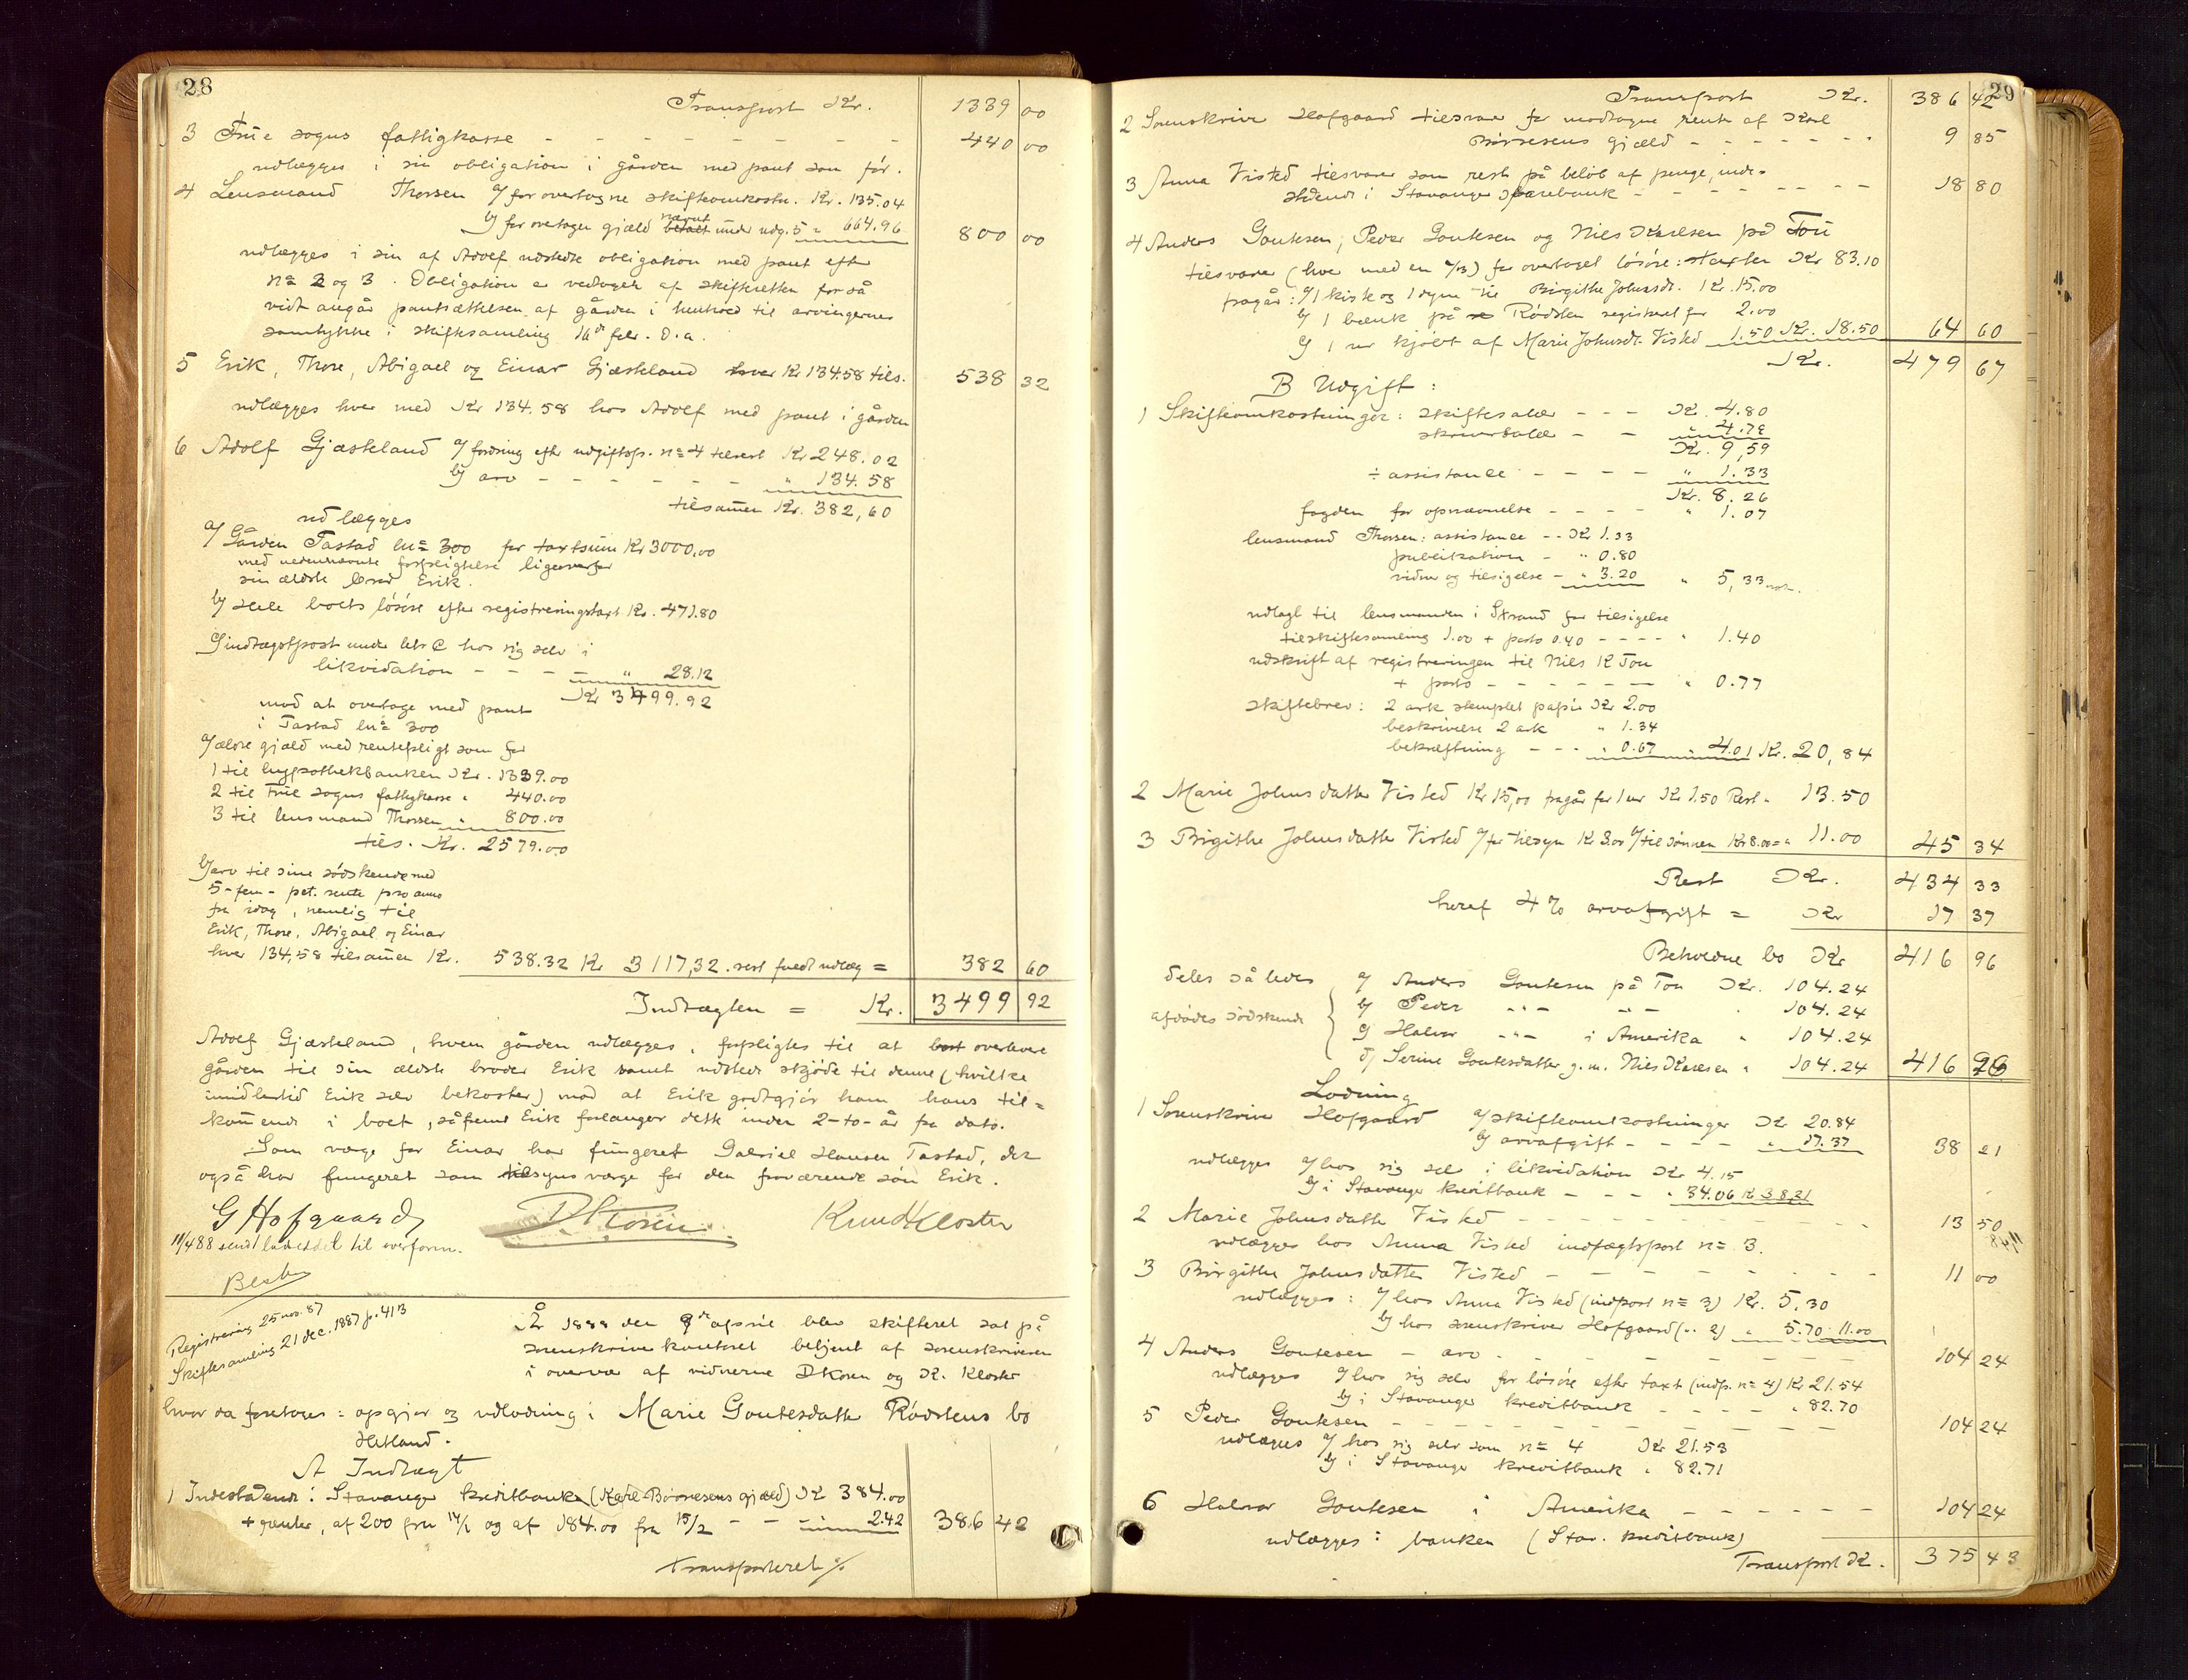 28
Transport Kr. 1339 00
3 Frue sogns fattigkasse - - - - - - - 440 00
udlægges i sin obligation i gården med pant som før.
4 Lensmand Thorsen a/ for overtagne skifteomkostn. Kr. 135.04
b/ for overtagen gjæld nævnt under udg. 5 " 664.96 800 00
udlægges i sin af Adolf udstedte obligation med pant efter
n= 2 og 3. Obligation er vedtaget af skifteretten for så
vidt angår pantsættelsen af gården i henhold til arvingernes
samtykke i skiftesamling 16de febr. d.a.
5 Erik, Thore, Abigael og Einar Gjæsteland hver Kr 134.58 tils. 538 32
udlægges hver med Kr 134.58 hos Adolf med pant i gården
6 Adolf Gjæsteland a/ fordring efter udgiftsp. n= 4 tilrest Kr 248.02
b/ arv - - - - - - " 134.58
tilsamen Kr. 382,60
udlægges
a/ Gården Tastad ln= 300 for taxtsum Kr 3000.00
med nedennævnte forpligtelse ligeoverfor
sin ældste broder Erik.
b/ Hele boets løsøre efter registreringstaxt Kr. 471.80
c/ indtægtspost under litr C hos sig selv i
likvidation - - - - " 28.12
Kr 3499.92
mod at overtage med pant
i Tastad ln= 300
a/ ældre gjæld med rentepligt som før
1 til hypothekbanken Kr. 1339.00
2 til Frue sogns fattigkasse " 440.00
3 til lensmand Thorsen " 800.00
tils. Kr. 2579.00
b/ arv til sine sødskende med
5 - fem - pct. rente pro anno
fra idag, nemlig til
Erik, Thore, Abigael og Einar
hver 134,58 tilsamen Kr. 538.32 Kr 3117,32. rest fuldt udlæg = 382 60
Indtægten = Kr. 3499 92
Adolf Gjæsteland, hvem gården udlægges, forpligtes til at overlevere
gården til sin ældste broder Erik samt udstede skjøde til denne (hvilke
imidlertid Erik selv bekoster) mod at Erik godtgjør ham hans til=
komende i boet, såfremt Erik forlanger dette inden 2-to-år fra dato.
Som værge for Einar har fungeret Gabriel Hansen Tastad, der
også har fungeret som tilsynsværge for den fraværende søn Erik.
G Hofgaard DKoren Knud Kloster
11/4 88 sendt lodseddel til overform.
Registrering 25 nov. 87
Skiftesamling 21 dec. 1887 p. 413
År 1888 den 9de april blev skifteret sat på
sorenskriverkontoret betjent af sorenskriveren
i overvær af vidnerne DKoren og K. Kloster
hvor da foretoges: opgjør og udlodning i Marie Goutesdatter Rødstens bo
Hetland.
A Indtægt
1 Indestående i Stavanger kreditbank (Karl Børresens gjæld) Kr 384.00
+ renter, af 200 fra 14/1 og af 184.00 fra 15/2 - - 2.42 386 42
Transporteret %
29
Transport Kr. 386 42
2 Sorenskriver Hofgaard tilsvarer for modtagne rente af Karl
Børresens gjæld - - - - - - 9 85
3 Anna Visted tilsvarer som rest på beløb af penge, inde-
stående i Stavanger sparebank - - - - - - 18 80
4 Anders Goutesen, Peder Goutesen og Niels Karlsen på Tou
tilsvarer (hver med en 1/3) for overtaget løsøre: taxten Kr 83.10
fragår: a/ 1 kiste og 1 dyne til Birgithe Johnsd. Kr. 15.00
b/ 1 bænk på Rødsten registreret for 2.00
c/ 1 ur kjøbt af Marie Johnsdt. Visted 1.50 Kr. 18.50 64 60
Kr. 479 67
B Udgift:
1 Skifteomkostninger: skiftesalær - - - Kr. 4.80
skriversalær - - " 4.79
Kr. 9,59
÷ assistance - - - - " 1.33
Kr. 8.26
fogden for opnævnelse - - - - " 1.07
lensmand Thorsen: assistance - - Kr 1.33
publikation - " 0.80
vidner og tilsigelse - " 3.20 " 5,33
udlagt til lensmanden i Strand for tilsigelse
til skiftesamling 1.00 + porto 0.40 - - - - " 1.40
udskrift af registreringen til Niels K Tou
+ porto - - - - - - - " 0.77
skiftebrev: 2 ark stemplet papir Kr 2.00
beskrivelse 2 ark " 1.34
bekræftning - - - " 0.67 " 4.01 Kr. 20,84
2 Marie Johnsdatter Visted Kr 15,00 fragår for 1 ur Kr 1.50 Rest " 13.50
3 Birgithe Johnsdatter Visted a/ for tilsyn Kr 3.00 b/ til sønnen Kr 8.00 = " 11.00 45 34
Rest Kr. 434 33
heraf 4% arvafgift = Kr 17 37
Beholdne bo Kr 416 96
deles således
afdødes sødskende
a/ Anders Goutesen på Tou Kr. 104.24
b/ Peder "- "- " 104.24
c/ Halvor "- i Amerika " 104.24
d/ Serine Goutesdatter g.m. Niels Karlsen " 104.24 416 96
Lodning
1 Sorenskriver Hofgaard a/ skifteomkostninger Kr 20.84
b/ arvafgift - - - - " 17.37 38 21
udlægges a/ hos sig selv i likvidation Kr 4.15
b/ i Stavanger kreditbank - - - " 34.06 Kr 38,21
2 Marie Johnsdatter Visted - - - - - - - - 13 50
udlægges hos Anna Visted indtægtspost n= 3.
3 Birgithe Johnsdatter Visted - - - - - - - 11 00
udlægges: a/ hos Anna Visted (indpost n= 3) Kr. 5.30
b/ hos sorenskriver Hofgaard (" 2) " 5.70 11.00
4 Anders Goutesen - arv - - - - - - - - 104 24
udlægges a/ hos sig selv for løsøre efter taxt (indp. n= 4) Kr 21.54
b/ i Stavanger kreditbank - - - - - " 82.70
5 Peder Goutesen - - - - - - - - - 104 24
udlægges a/ hos sig selv som n= 4 Kr 21.53
b/ i Stavanger kreditbank " 82.71
6 Halvor Goutesen i Amerika - - - - - 104 24
udlægges i banken (Stav. kreditbank)
Transport Kr. 375 43